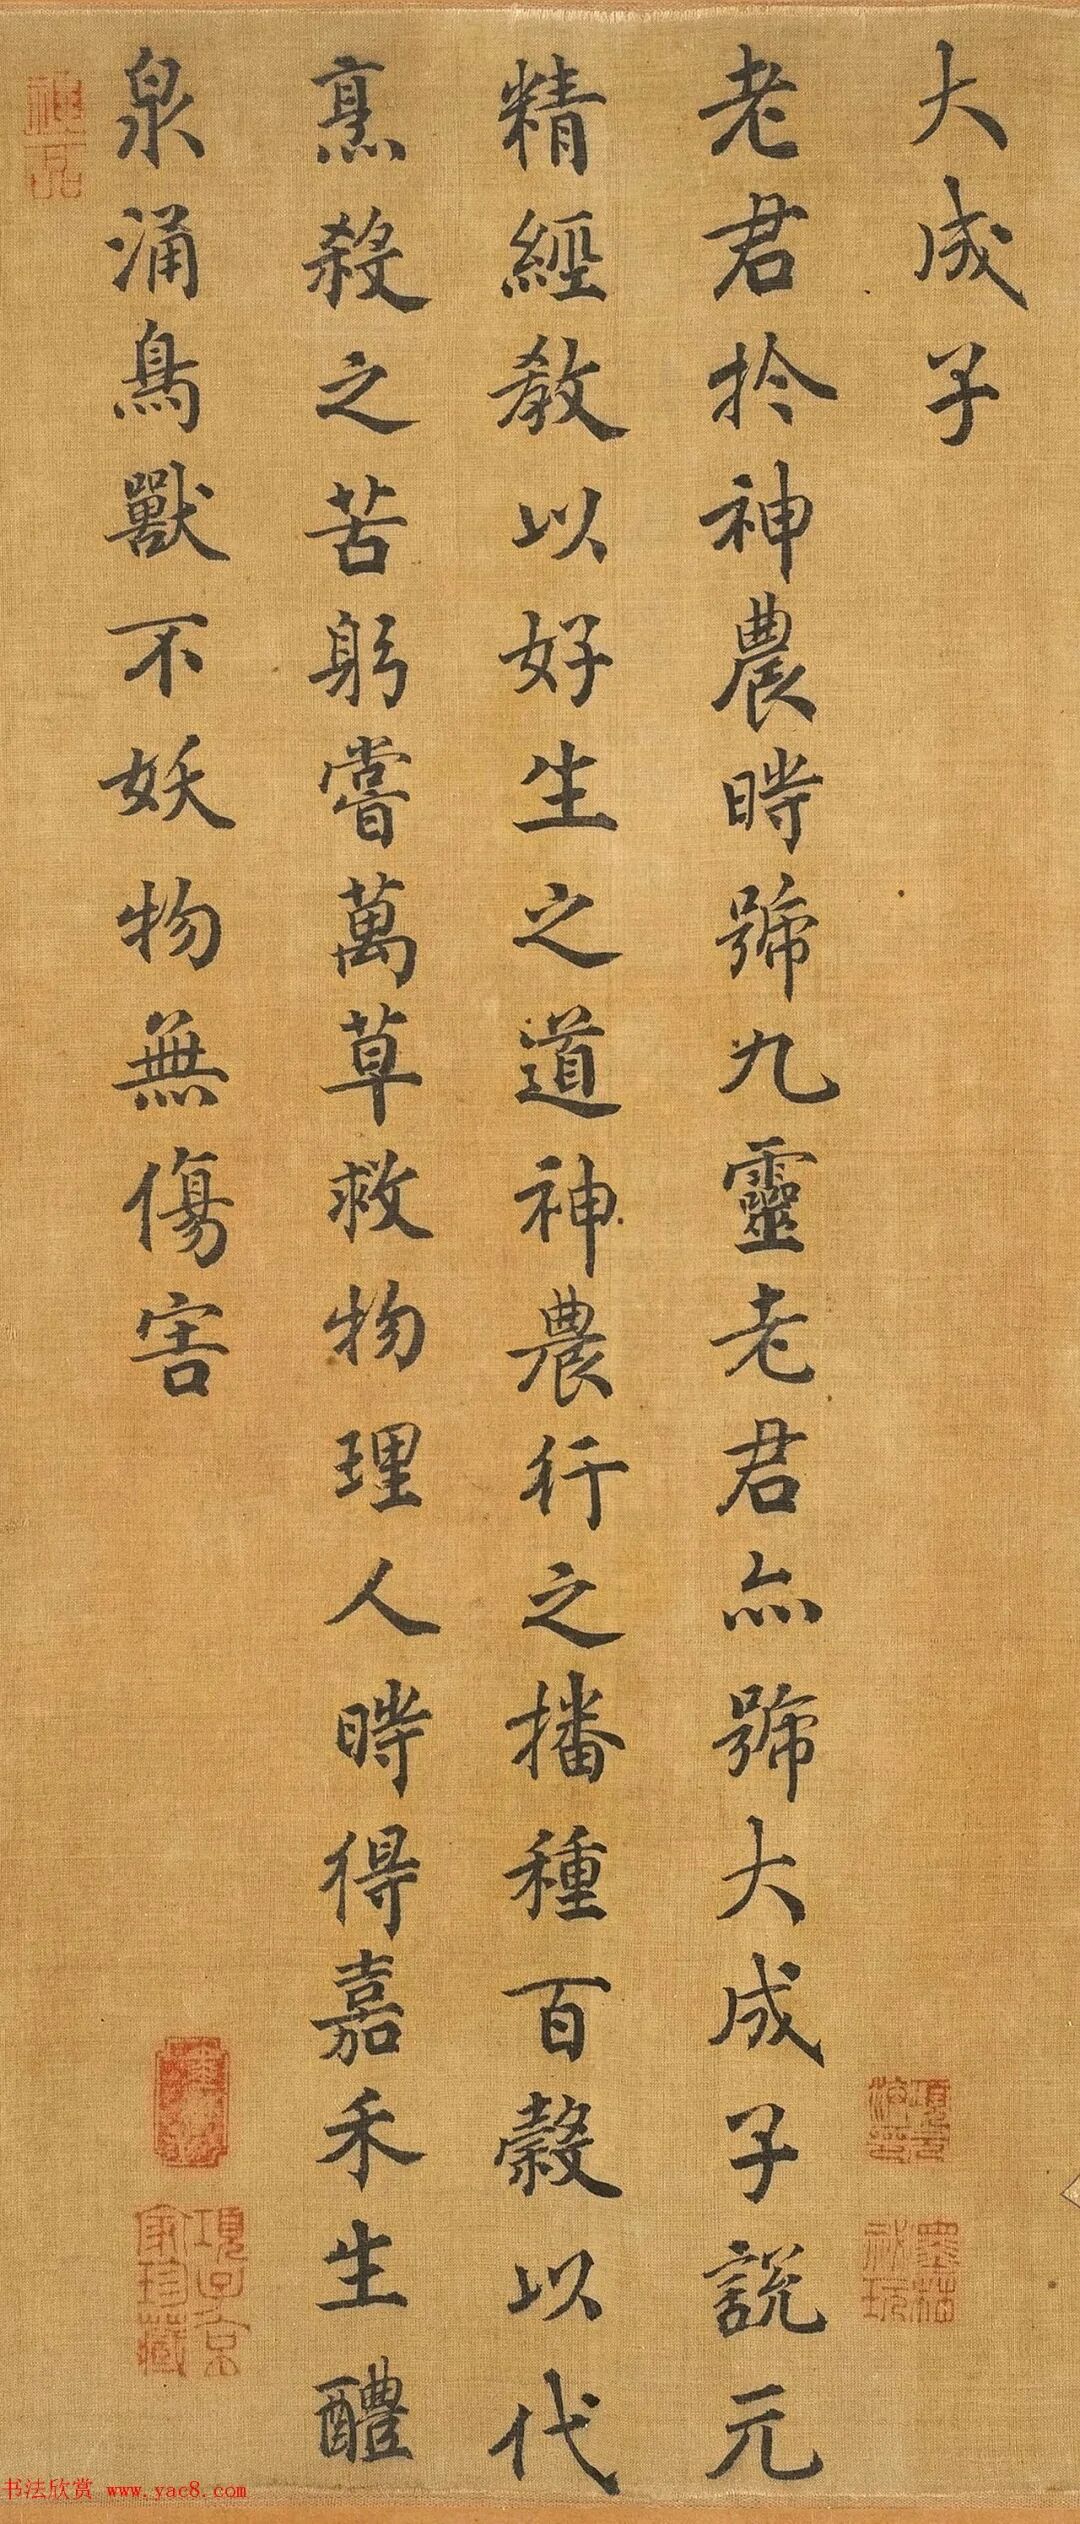 大成子
老君於神農時號九靈老君亦號大成子説元
精經教以好生之道神農行之播種百穀以代
烹殺之苦躬嘗萬草救物理人時得嘉禾生醴
泉涌鳥獸不妖物無傷害
神品
項子京
家珍藏
墨林
祕玩
书法欣赏 www.yac8.com